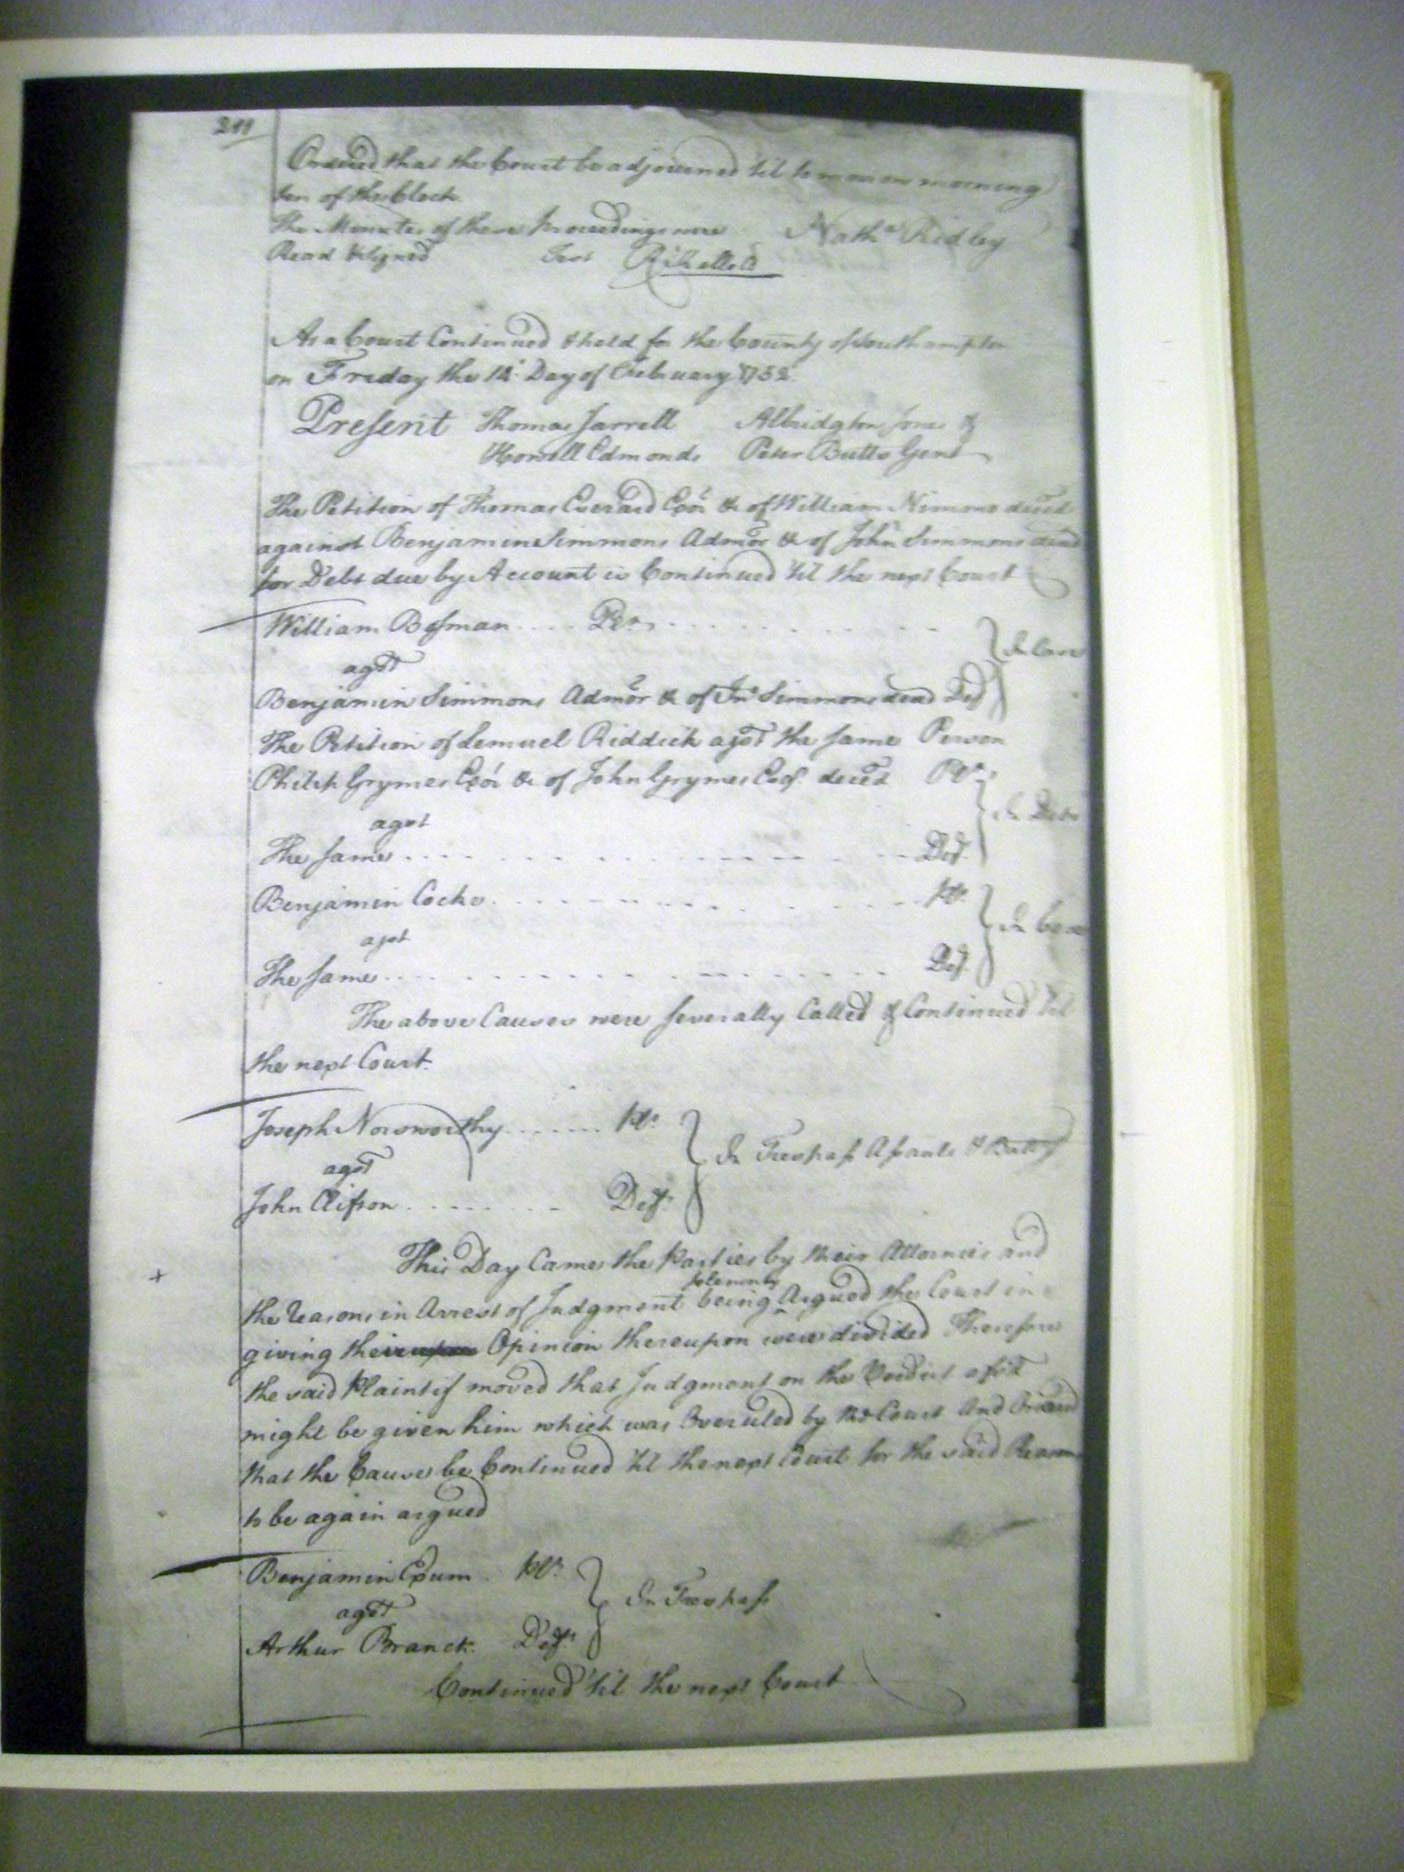 211
Ordered that the Court be adjourned 'til to morrow morning
ten of the Clock
The Minutes of these Proceedings were Nath.ᵃ Ridley
Read & Signed Test
At a Court Continued & held for the County of Southampton
on Friday the 14 Day of February 1752
Present Thomas Jarrell Albridgton Jones &
Howell Edmonds Peter Butts Gent
The Petition of Thomas Everard Exor &c of William Nimmo deced
against Benjamin Simmons Admor &c of John Simmons dead
for Debt due by Account is Continued 'til the next Court
William Bosman . . . . Plr . . . . . . . .
agst } In Case
Benjamin Simmons Admor &c of Jnº Simmons dead Def
The Petition of Lemuel Riddick agst the Same Person
Philip Grymes Exor &c of John Grymes Esqr deced Plr
agst } In Debt
The Same . . . . . . . . . . Def.
Benjamin Cocke . . . . . . . . . Plr
agst } In Case
The Same . . . . . . . . . . Def.
The above Causes were Severally Called & Continued 'til
the next Court.
Joseph Norsworthy . . . . . . Plr
agst } In Trespass Assault & Battry
John Clifton . . . . . . . Deft
This Day Came the Parties by their Attornies and
the reasons in Arrest of Judgment being solemnly Argued the Court in
giving their Opinion thereupon were divided Therefore
the said Plaintif moved that Judgment on the Verdict afsd
might be given him which was Overuled by the Court And Ordered
that the Cause be Continued 'til the next Court for the said Reasons
to be again argued
Benjamin Exum Plr
agst } In Trespass
Arthur Branch Deft
Continued 'til the next Court